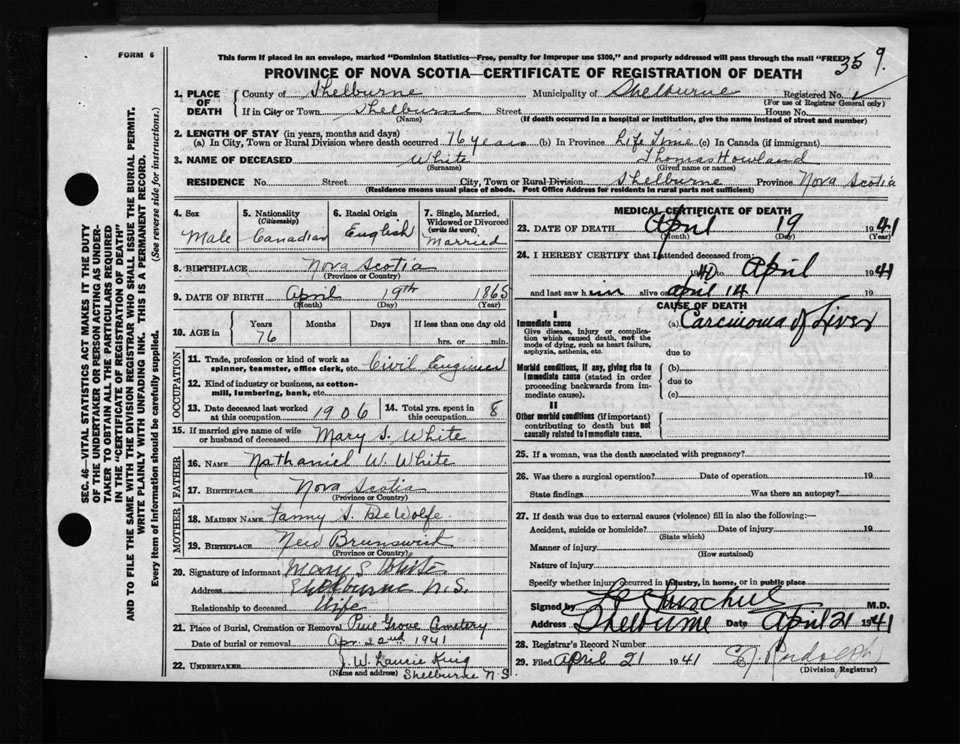 FORM 6
This form if placed in an envelope, marked "Dominion Statistics—Free, penalty for improper use $300," and properly addressed will pass through the mail "FREE"
35 9.
PROVINCE OF NOVA SCOTIA—CERTIFICATE OF REGISTRATION OF DEATH
SEC. 46—VITAL STATISTICS ACT MAKES IT THE DUTY
OF THE UNDERTAKER OR PERSON ACTING AS UNDER-
TAKER TO OBTAIN ALL THE PARTICULARS REQUIRED
IN THE "CERTIFICATE OF REGISTRATION OF DEATH"
AND TO FILE THE SAME WITH THE DIVISION REGISTRAR WHO SHALL ISSUE THE BURIAL PERMIT.
WRITE PLAINLY WITH UNFADING INK. THIS IS A PERMANENT RECORD.
Every item of information should be carefully supplied. (See reverse side for instructions.)
1. PLACE OF DEATH County of Shelburne Municipality of Shelburne Registered No. 1
(For use of Registrar General only)
If in City or Town Shelburne Street House No.
(Name) (If death occurred in a hospital or institution, give the name instead of street and number)
2. LENGTH OF STAY (in years, months and days)
(a) In City, Town or Rural Division where death occurred 76 years (b) In Province Life Time (c) In Canada (if immigrant)
3. NAME OF DECEASED White Thomas Howland
(Surname) (Given name or names)
RESIDENCE No Street City, Town or Rural Division Shelburne Province Nova Scotia
(Residence means usual place of abode. Post Office Address for residents in rural parts not sufficient)
4. Sex Male
5. Nationality (Citizenship) Canadian
6. Racial Origin English
7. Single, Married, Widowed or Divorced (write the word) Married
8. BIRTHPLACE Nova Scotia
(Province or Country)
9. DATE OF BIRTH April 19th 1865
(Month) (Day) (Year)
10. AGE in Years Months Days If less than one day old
76 hrs. or min.
OCCUPATION
11. Trade, profession or kind of work as spinner, teamster, office clerk, etc. Civil Engineer
12. Kind of industry or business, as cotton-mill, lumbering, bank, etc.
13. Date deceased last worked at this occupation 1906
14. Total yrs. spent in this occupation 8
15. If married give name of wife or husband of deceased Mary S. White
FATHER
16. NAME Nathaniel W. White
17. BIRTHPLACE Nova Scotia
(Province or Country)
MOTHER
18. MAIDEN NAME Fanny S. DeWolfe
19. BIRTHPLACE New Brunswick
(Province or Country)
20. Signature of informant Mary S White
Address Shelburne N.S.
Relationship to deceased Wife
21. Place of Burial, Cremation or Removal Pine Grove Cemetery
Date of burial or removal Apr. 22nd 1941
22. UNDERTAKER J. W. Laurie King
(Name and address) Shelburne N.S.
MEDICAL CERTIFICATE OF DEATH
23. DATE OF DEATH April 19 1941
(Month) (Day) (Year)
24. I HEREBY CERTIFY that I attended deceased from:
1940 to April 1941
and last saw him alive on April 14 19
CAUSE OF DEATH
I
Immediate cause
Give disease, injury or complication which caused death, not the mode of dying, such as heart failure, asphyxia, asthenia, etc.
(a) Carcinoma of Liver
due to
Morbid conditions, if any, giving rise to immediate cause (stated in order proceeding backwards from immediate cause).
(b)
due to
(c)
II
Other morbid conditions (if important) contributing to death but not causally related to immediate cause.
25. If a woman, was the death associated with pregnancy?
26. Was there a surgical operation? Date of operation 19
State findings Was there an autopsy?
27. If death was due to external causes (violence) fill in also the following:—
Accident, suicide or homicide? Date of injury 19
(State which)
Manner of injury
(How sustained)
Nature of injury
Specify whether injury occurred in industry, in home, or in public place
Signed by M.D.
Address Shelburne Date April 21 1941
28. Registrar's Record Number
29. Filed April 21 1941 Rudolph
(Division Registrar)